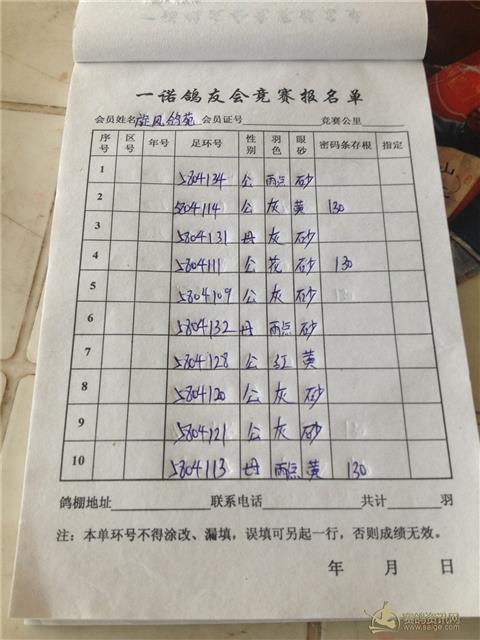 一诺鸽友会竞赛报名单
会员姓名 旋风鸽苑 会员证号 竞赛公里
序号 区号 年号 足环号 性别 羽色 眼砂 密码条存根 指定
1 5804134 公 雨点 砂
2 5804114 公 灰 黄 130
3 5804131 母 灰 砂
4 5804111 公 花 砂 130
5 5804109 公 灰 砂
6 5804132 母 雨点 砂
7 5804128 公 红 黄
8 5804120 公 灰 砂
9 5804121 公 灰 砂
10 5804113 母 雨点 黄 130
鸽棚地址 联系电话 共计 羽
注：本单环号不得涂改、漏填，误填可另起一行，否则成绩无效。
年 月 日
赛鸽资讯网
www.saige.com